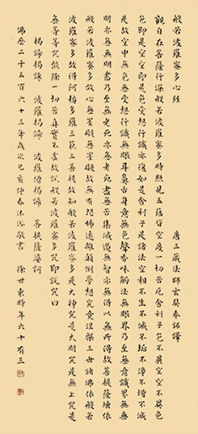 般若波羅蜜多心經
唐三藏法師玄奘奉詔譯
觀自在菩薩行深般若波羅蜜多時照見五蘊皆空度一切苦厄舍利子色不異空空不異色
色即是空空即是色受想行識亦復如是舍利子是諸法空相不生不滅不垢不淨不增不減
是故空中無色無受想行識無眼耳鼻舌身意無色聲香味觸法無眼界乃至無意識界無無
明亦無無明盡乃至無老死亦無老死盡無苦集滅道無智亦無得以無所得故菩提薩埵依
般若波羅蜜多故心無罣礙無罣礙故無有恐怖遠離顛倒夢想究竟涅槃三世諸佛依般若
波羅蜜多故得阿耨多羅三藐三菩提故知般若波羅蜜多是大神咒是大明咒是無上咒是
無等等咒能除一切苦真實不虛故說般若波羅蜜多咒即說咒曰
揭諦揭諦 波羅揭諦 波羅僧揭諦 菩提薩婆訶
佛歷二千五百六十三年歲次己亥仲春沐浴敬書 徐世東時年六十有三